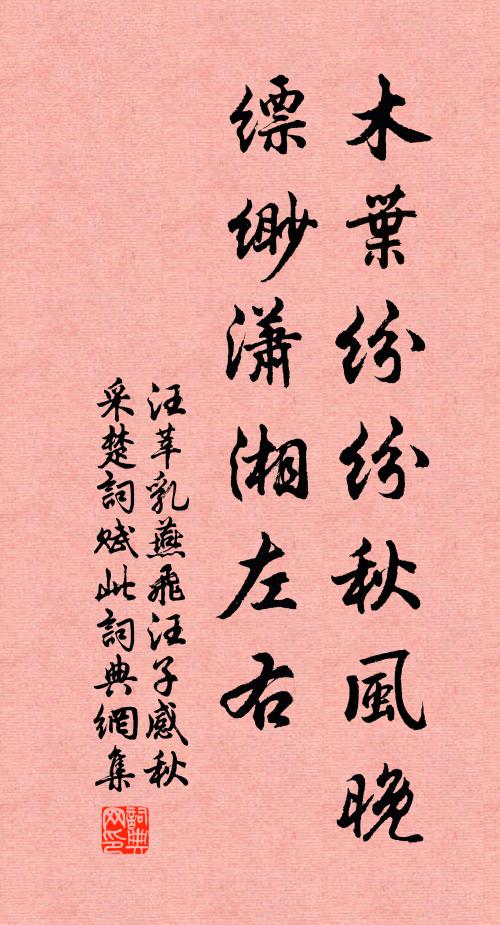 木葉紛紛秋風晚
縹緲瀟湘左右
汪莘乳燕飛汪子感秋
采楚詞賦此詞典網集
詞典
网印